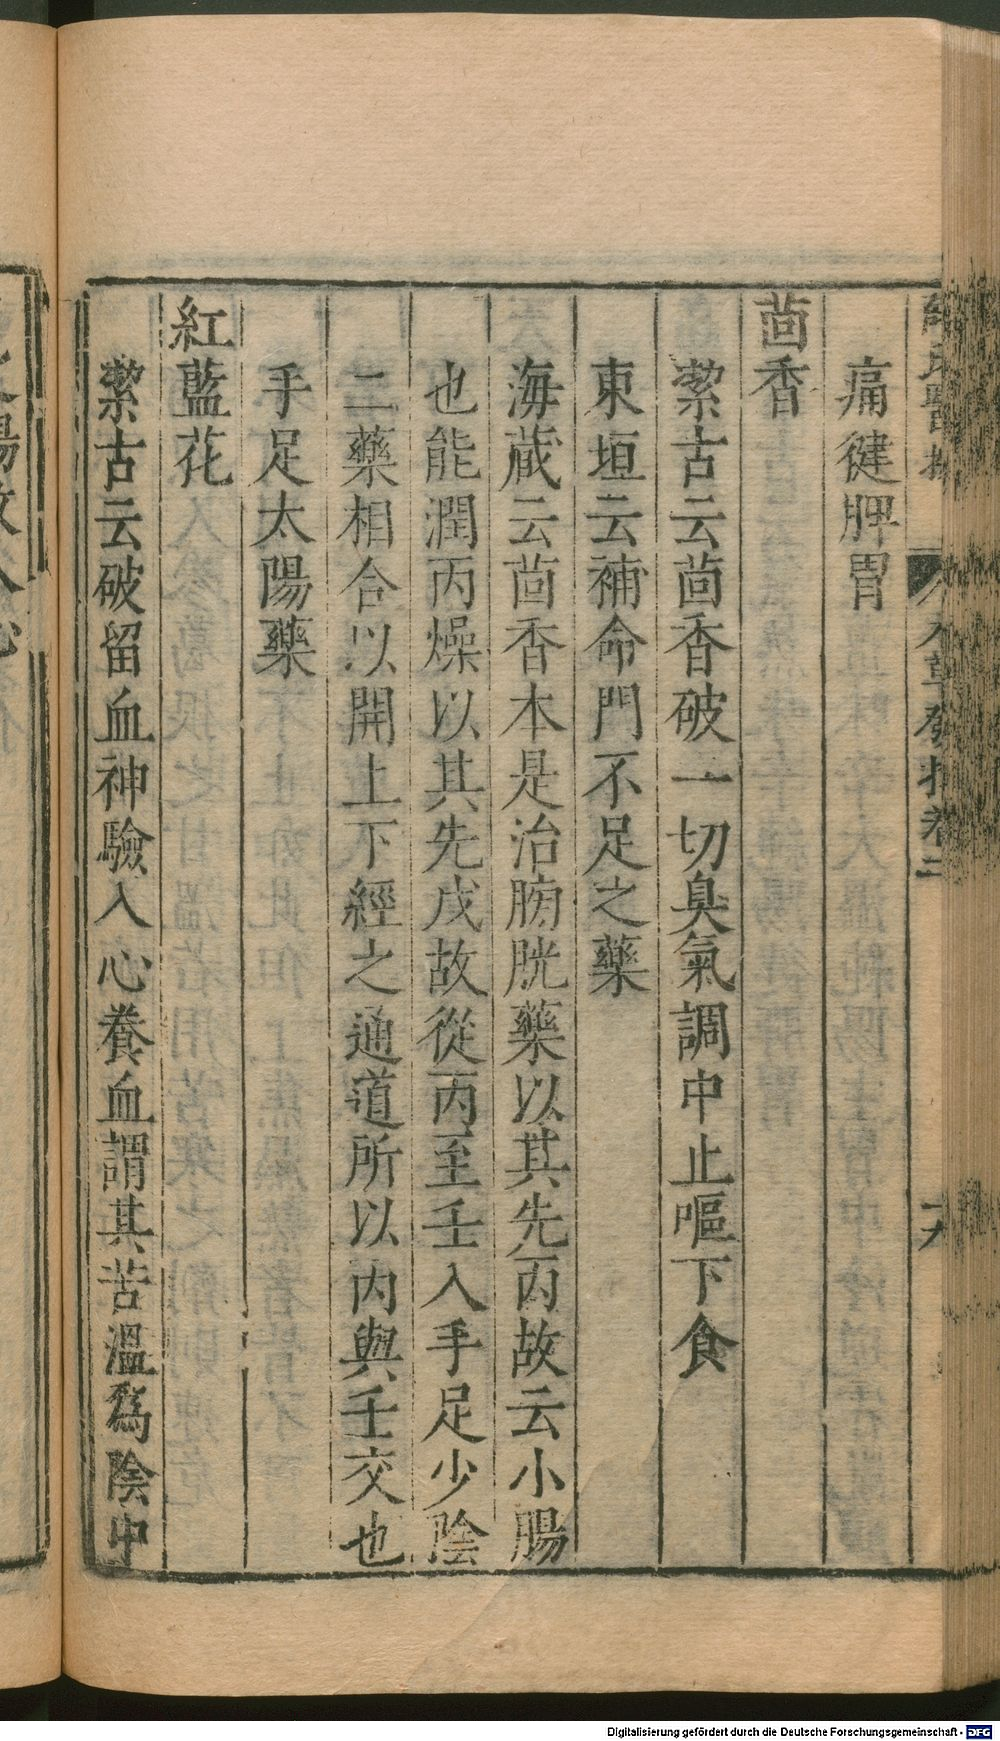 本草發揮卷二
痛健脾胃
茴香
潔古云茴香破一切臭氣調中止嘔下食
東垣云補命門不足之藥
海蔵云茴香本是治膀胱藥以其先丙故云小腸
也能潤丙燥以其先戊故從丙至壬入手足少陰
二藥相合以開上下經之通道所以丙與壬交也
手足太陽藥
紅藍花
潔古云破留血神驗入心養血謂其苦溫爲陰中
Digitalisierung gefördert durch die Deutsche Forschungsgemeinschaft - DFG